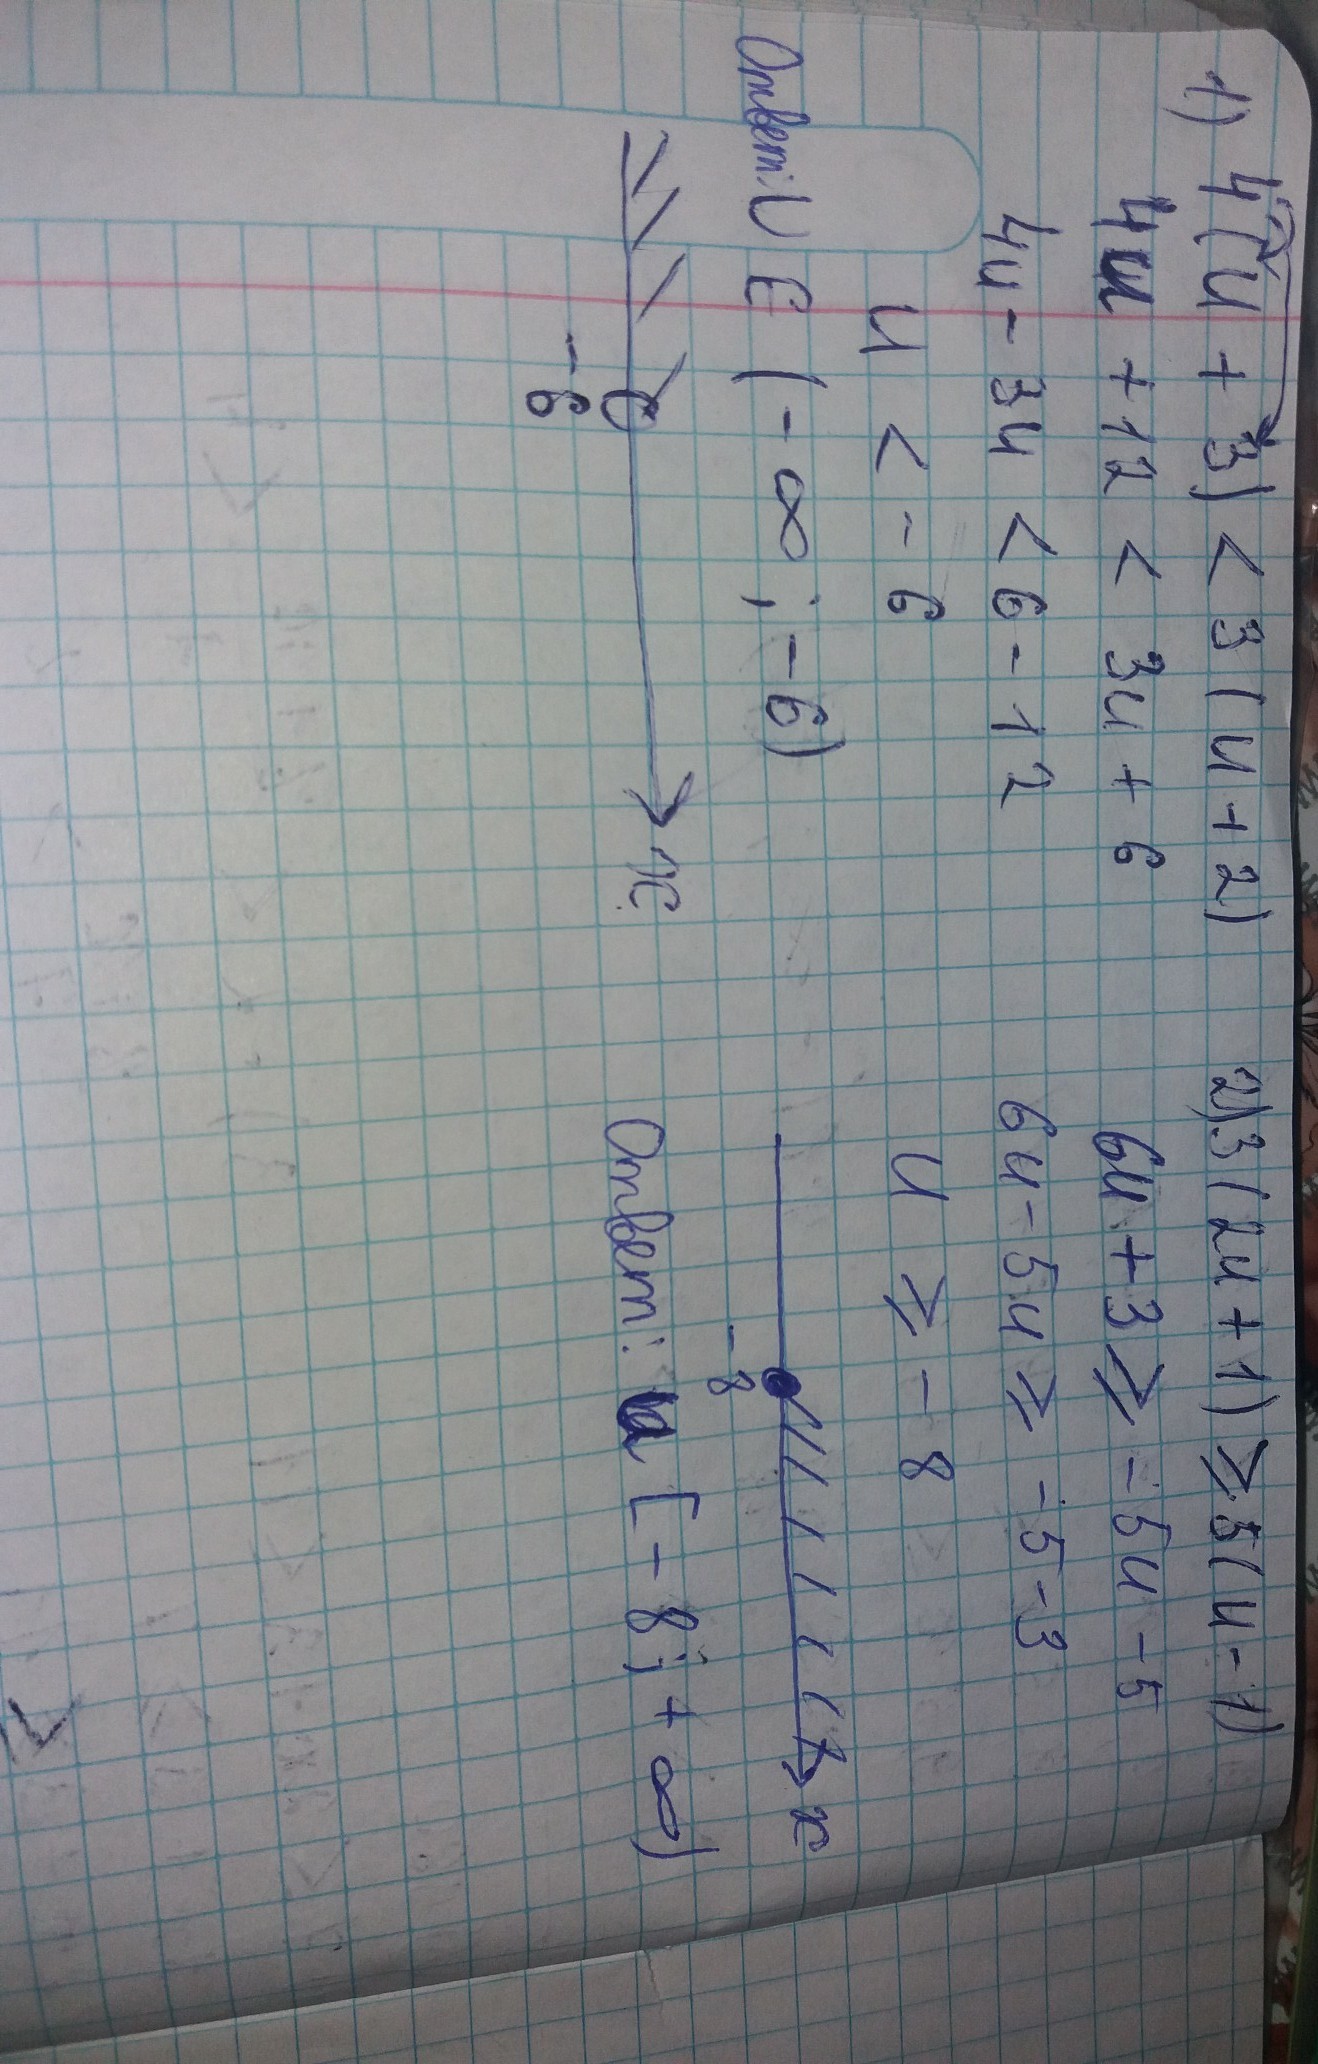 1) 4(u + 3) < 3(u + 2)
4u + 12 < 3u + 6
4u - 3u < 6 - 12
u < - 6
Ответ: U ∈ (- ∞ ; - 6)
x
-6
2) 3(2u + 1) ⩾ 5(u - 1)
6u + 3 ⩾ - 5u - 5
6u - 5u ⩾ - 5 - 3
u ⩾ - 8
x
-8
Ответ: u [- 8; + ∞)